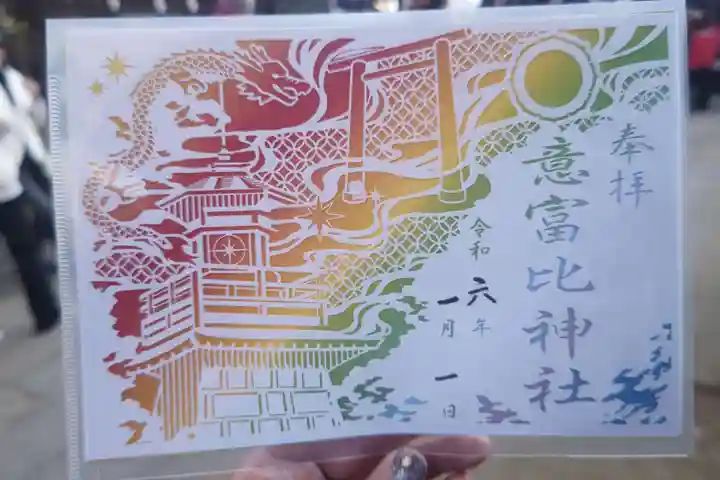 奉拝
意富比神社
令和
六年
一月
一日